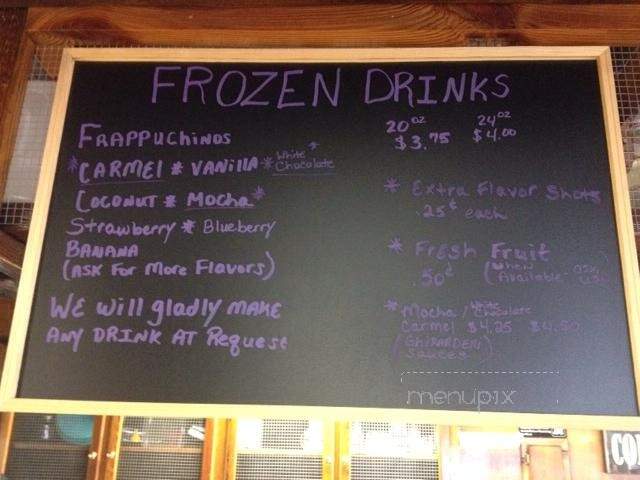 FROZEN DRINKS
FRAPPUCHINOS
*CARMEL * VANILLA * White Chocolate *
COCONUT * MOCHA *
Strawberry * Blueberry
BANANA
(ASK FOR More Flavors)
WE will gladly MAKE
ANY DRINK AT Request
20 oz 24 oz
$3.75 $4.00
* Extra Flavor Shots
.25¢ each
* Fresh Fruit
.50¢ (When Available-
* Mocha / White Chocolate
Carmel $4.25 $4.50
(GHIRARDELI
Sauces)
menupix
CO